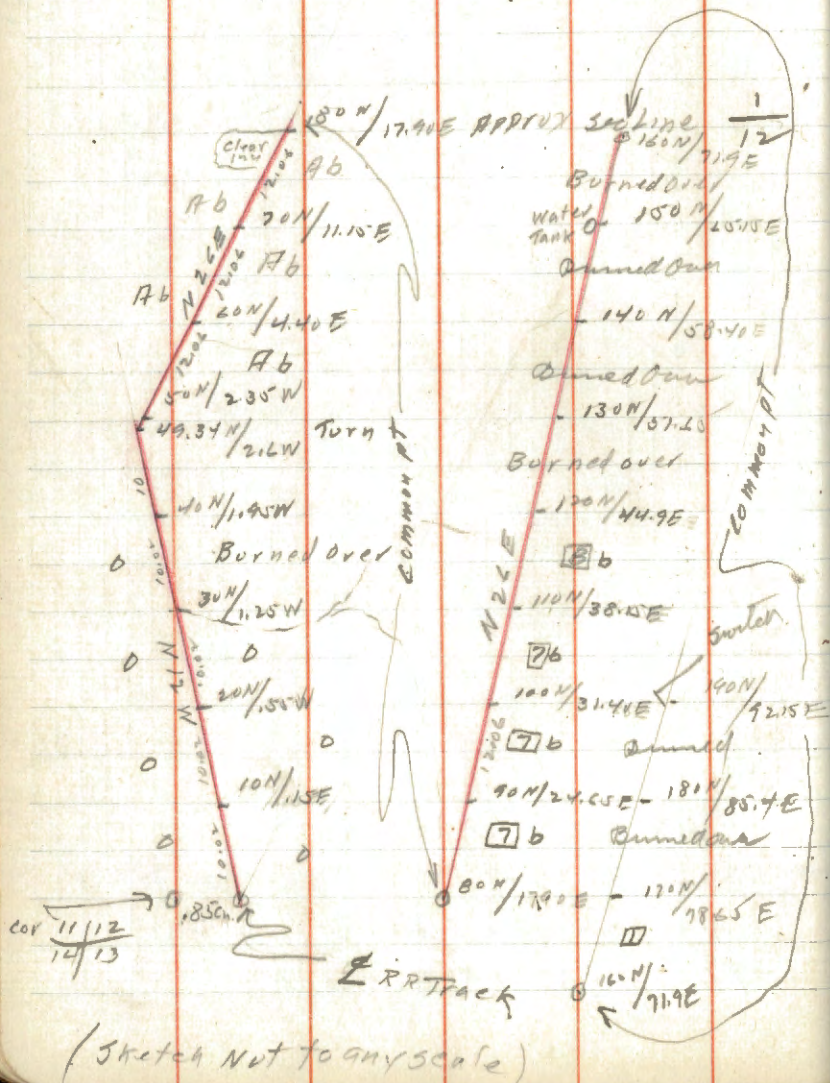 80N/17.90E APPROX Sec Line 1/12
Clear
Ab
12.06
Ab
70N/11.15E
N 26 E
12.06
Ab
Ab
60N/4.40E
12.06
Ab
50N/2.35W
49.34N/2.6W Turn
10
40N/1.95W
Burned Over
0
20.01
30N/1.25W
0
0
N 12 W
20.01
20N/.55W
0
0
20.01
10N/.15E
0
0
20.01
.85ch.
cor 11|12
14|13
£ RR Track
common pt
160N/71.9E
Burned Over
Water Tank
150N/65.15E
Burned Over
140N/58.40E
Burned Over
130N/51.65
Burned over
120N/44.9E
N 26 E
8 b
110N/38.15E
7 b
100N/31.40E
12.06
7 b
90N/24.65E
7 b
80N/17.90E
common pt
Switch
190N/92.15E
Burned
180N/85.4E
Burned over
170N/78.65E
160N/71.9E
(Sketch Not to any scale)